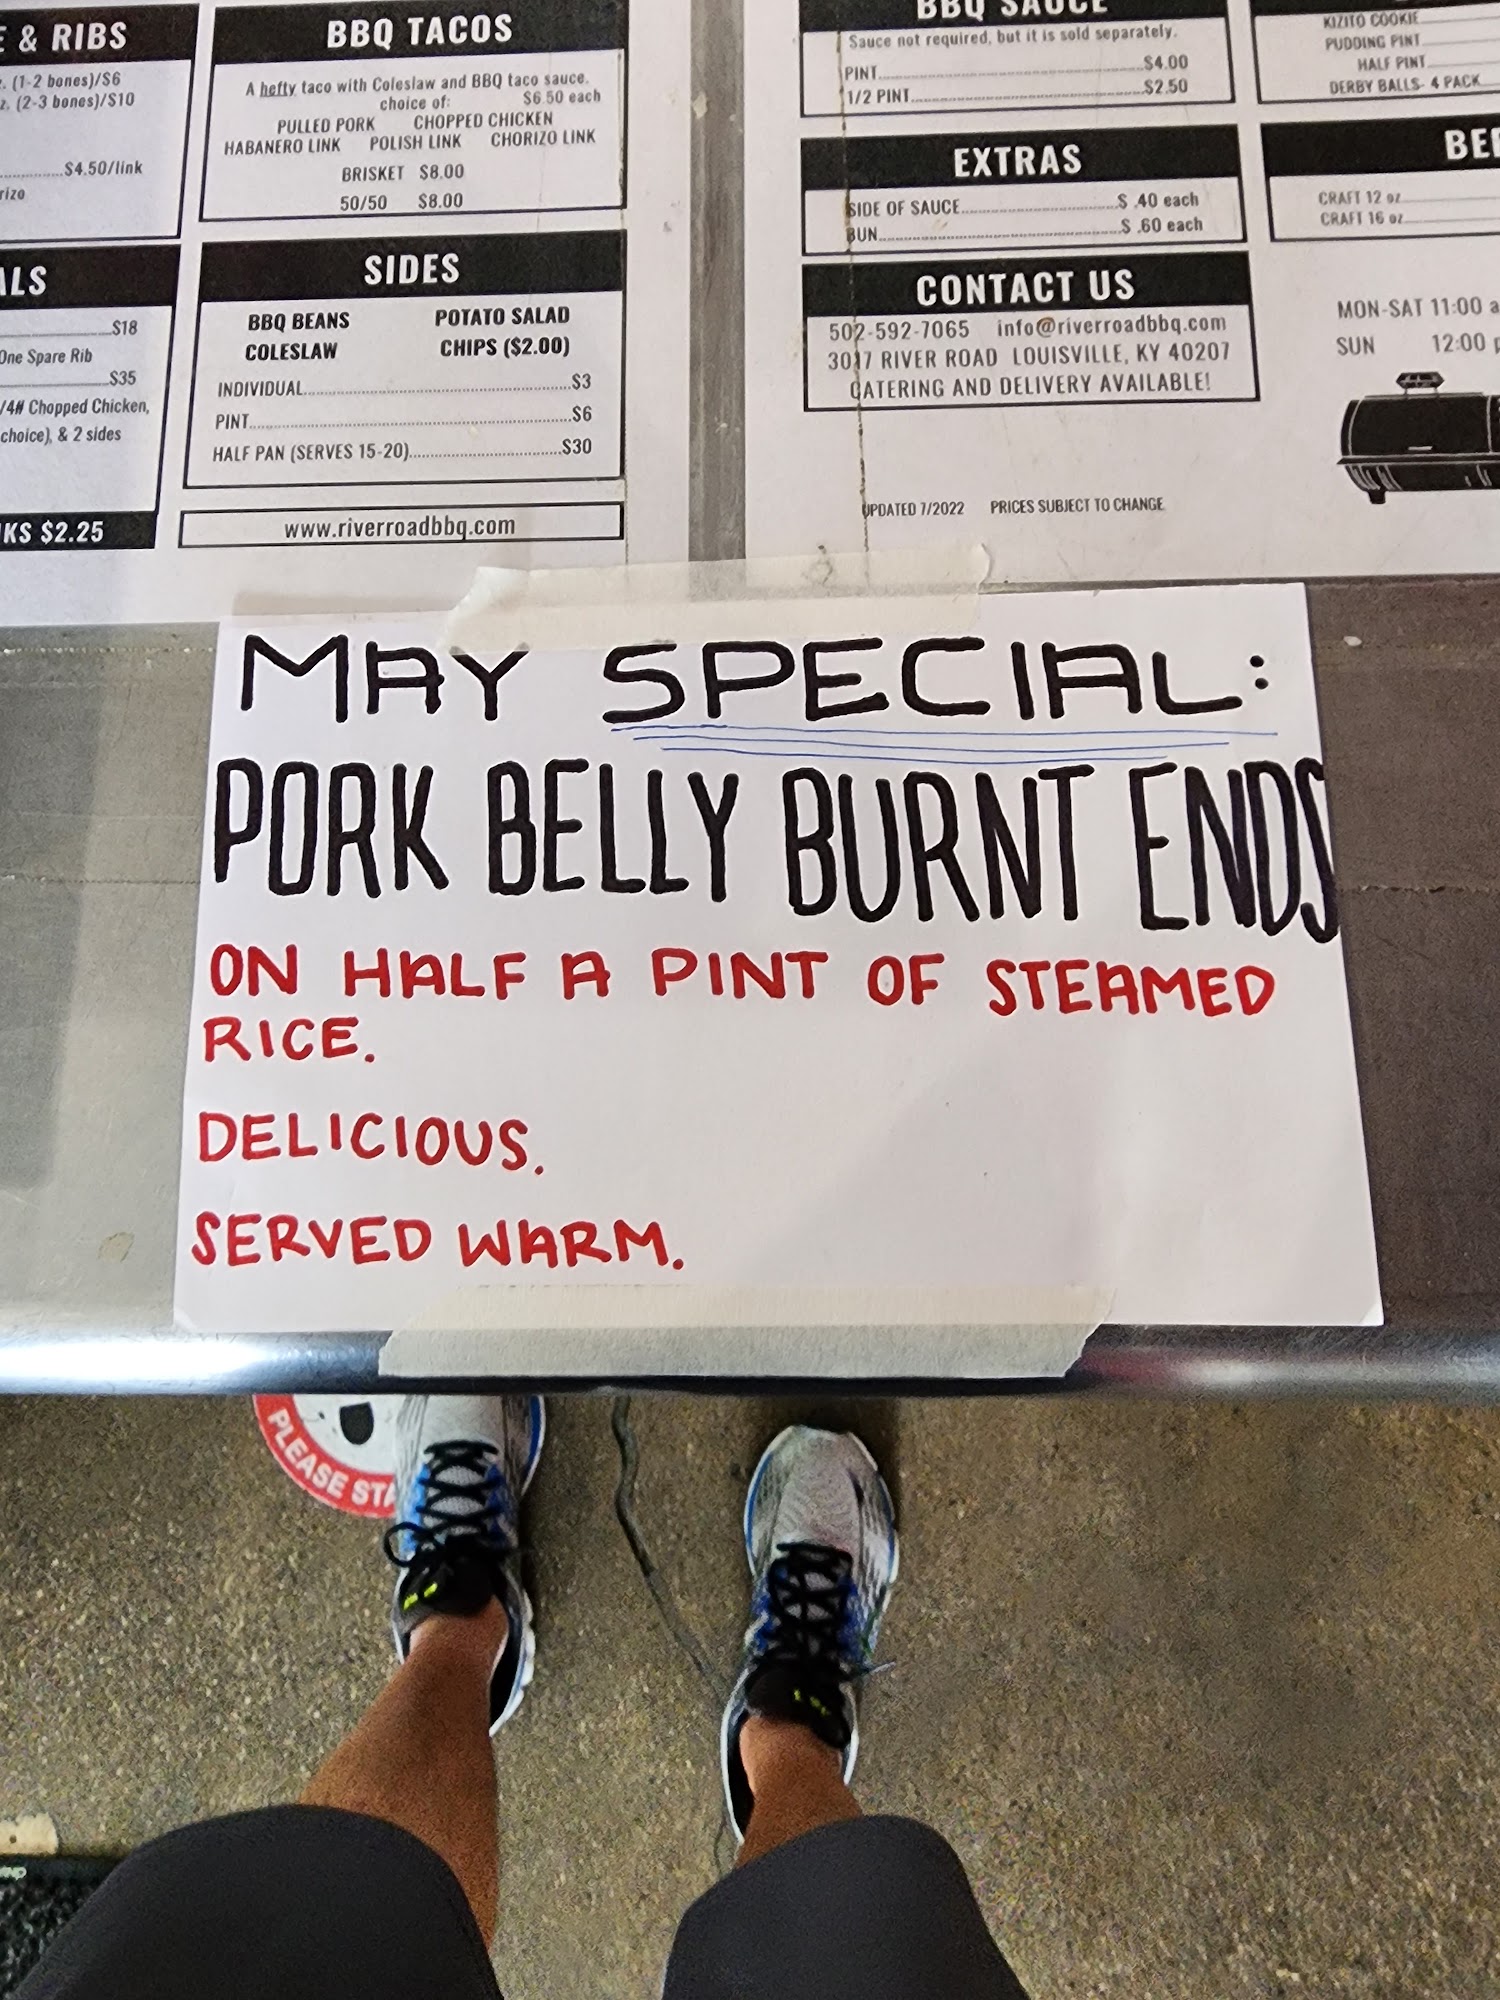 & RIBS
(1-2 bones)/$6
(2-3 bones)/$10
$4.50/link
$18
One Spare Rib
$35
/4# Chopped Chicken,
choice), & 2 sides
$2.25
BBQ TACOS
A hefty taco with Coleslaw and BBQ taco sauce.
choice of: $6.50 each
PULLED PORK CHOPPED CHICKEN
HABANERO LINK POLISH LINK CHORIZO LINK
BRISKET $8.00
50/50 $8.00
SIDES
BBQ BEANS POTATO SALAD
COLESLAW CHIPS ($2.00)
INDIVIDUAL $3
PINT $6
HALF PAN (SERVES 15-20) $30
www.riverroadbbq.com
BBQ SAUCE
Sauce not required, but it is sold separately.
PINT $4.00
1/2 PINT $2.50
EXTRAS
SIDE OF SAUCE $ .40 each
BUN $ .60 each
CONTACT US
502-592-7065 info@riverroadbbq.com
3017 RIVER ROAD LOUISVILLE, KY 40207
CATERING AND DELIVERY AVAILABLE!
UPDATED 7/2022 PRICES SUBJECT TO CHANGE
KIZITO COOKIE
PUDDING PINT
HALF PINT
DERBY BALLS- 4 PACK
CRAFT 12 oz
CRAFT 16 oz
MON-SAT 11:00
SUN 12:00
MAY SPECIAL:
PORK BELLY BURNT ENDS
ON HALF A PINT OF STEAMED
RICE.
DELICIOUS.
SERVED WARM.
PLEASE